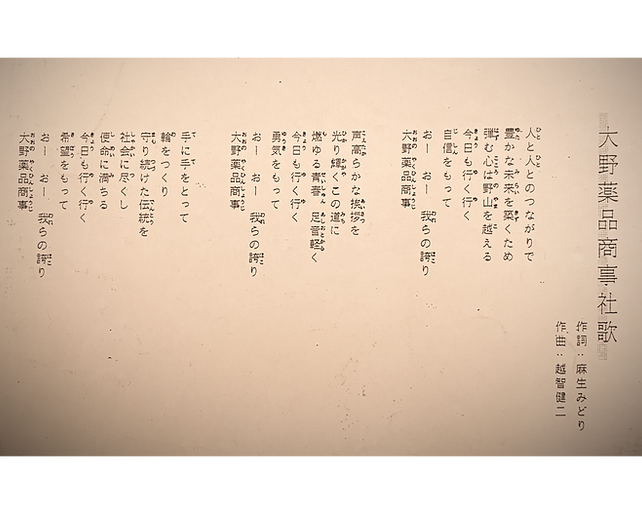 大野薬品商事社歌
作詞：麻生みどり
作曲：越智健二
人と人とのつながりで
豊かな未来を築くため
弾む心は野山を越える
今日も行く行く
自信をもって
おー　おー　我らの誇り
大野薬品商事
声高らかな挨拶を
光り輝くこの道に
燃ゆる青春　足音軽く
今日も行く行く
勇気をもって
おー　おー　我らの誇り
大野薬品商事
手に手をとって
輪をつくり
守り続けた伝統を
社会に尽くし
使命に満ちる
今日も行く行く
希望をもって
おー　おー　我らの誇り
大野薬品商事